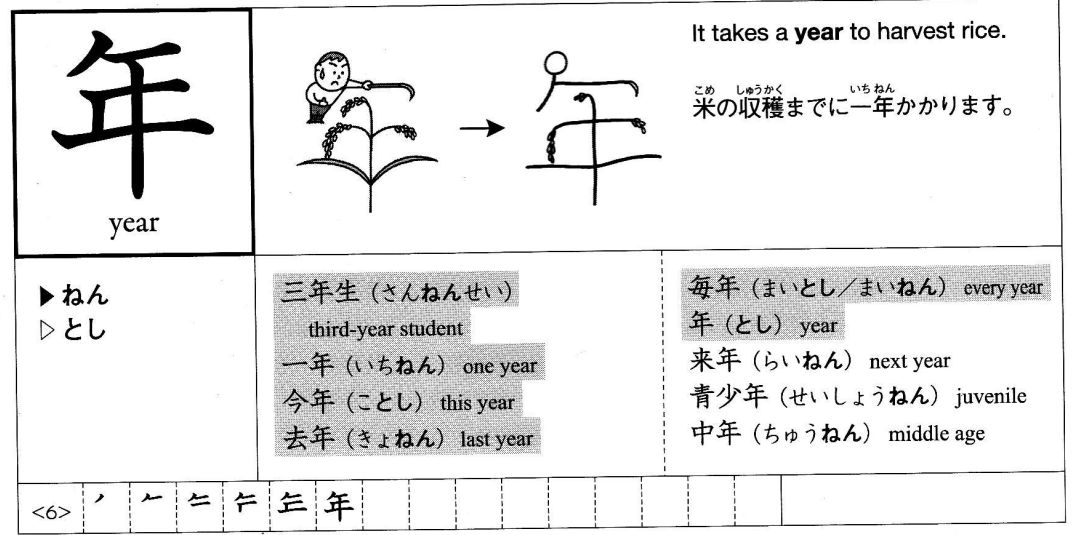 年
year
It takes a year to harvest rice.
こめ しゅうかく いちねん
米の収穫までに一年かかります。
▶ ねん
▷ とし
三年生（さんねんせい）
third-year student
一年（いちねん） one year
今年（ことし） this year
去年（きょねん） last year
毎年（まいとし／まいねん） every year
年（とし） year
来年（らいねん） next year
青少年（せいしょうねん） juvenile
中年（ちゅうねん） middle age
<6> 年